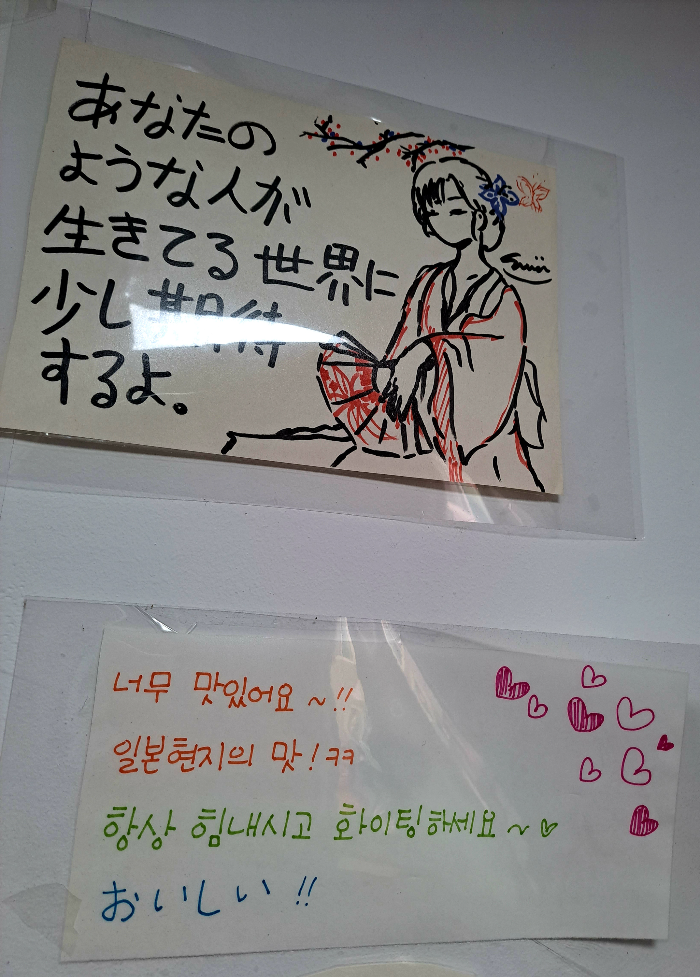 あなたの
ような人が
生きてる世界に
少し期待
するよ。
너무 맛있어요~!!
일본현지의 맛!ㅋㅋ
항상 힘내시고 화이팅하세요~♡
おいしい!!